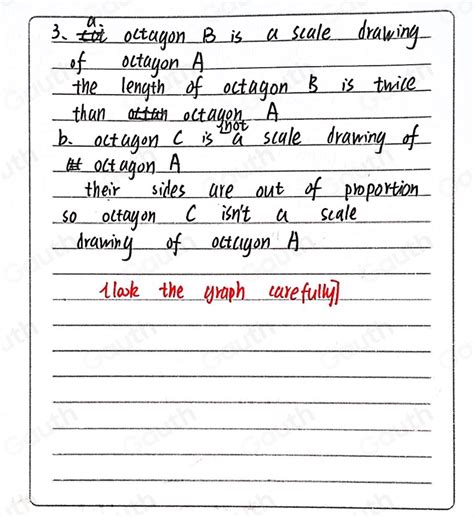 3. a. octagon B is a scale drawing
of octagon A
the length of octagon B is twice
than octagon A
b. octagon C is not a scale drawing of
octagon A
their sides are out of proportion
so octagon C isn't a scale
drawing of octagon A
[look the graph carefully]